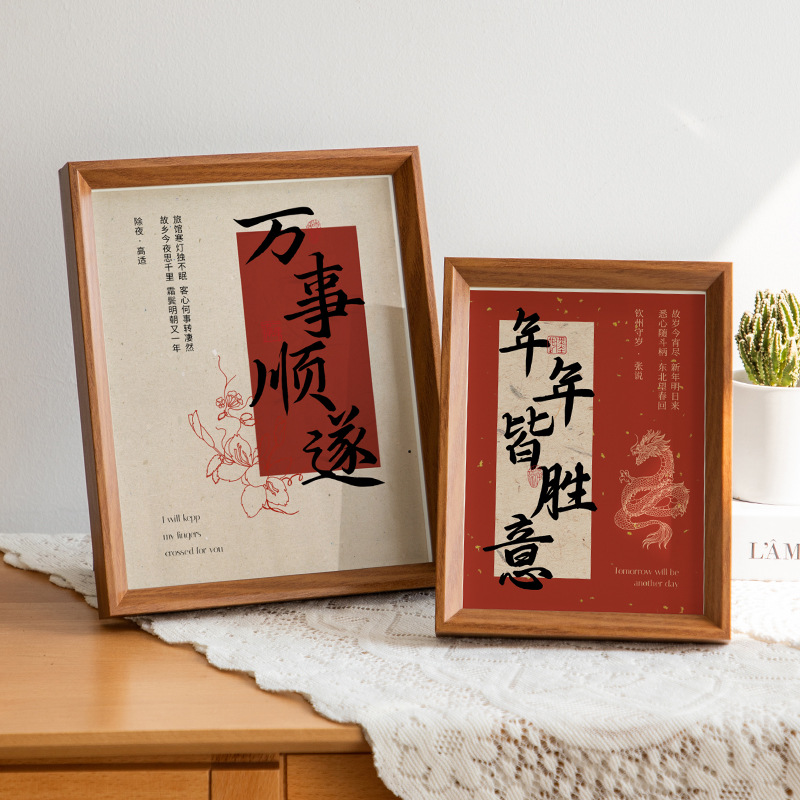 万事顺遂
旅馆寒灯独不眠 客心何事转凄然
故乡今夜思千里 霜鬓明朝又一年
除夜·高适
I will kepp
my fingers
crossed for you
年年皆胜意
故岁今宵尽 新年明日来
愁心随斗柄 东北望春回
钦州守岁·张说
Tomorrow will be
another day
L'ÂM